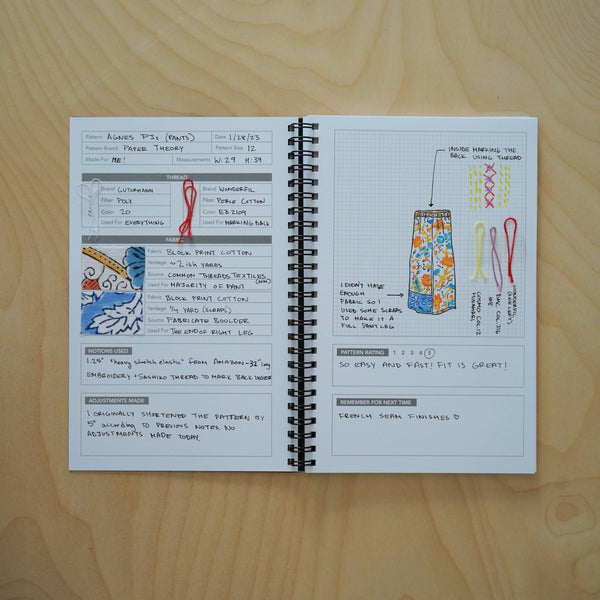 Pattern AGNES PJs (PANTS) Date 1/28/23
Pattern Brand PAPER THEORY Pattern Size 12
Made For ME! Measurements W:29 H:39
THREAD
Brand GUTERMANN
Fiber POLY
Color 20
Used For EVERYTHING
Brand WONDERFIL
Fiber PERLE COTTON
Color EZ2109
Used For MARKING BACK
FABRIC
Fabric BLOCK PRINT COTTON
Yardage ~2 ISH YARDS
Source COMMON THREADS TEXTILES
Used For MAJORITY OF PANT
Fabric BLOCK PRINT COTTON
Yardage 1/4 YARD (SCRAPS)
Source FABRICATE BOULDER
Used For THE END OF RIGHT LEG
NOTIONS USED
1.25" "heavy stretch elastic" FROM AMAZON - 32" long
EMBROIDERY + SASHIKO THREAD TO MARK BACK INSIDE
ADJUSTMENTS MADE
I ORIGINALLY SHORTENED THE PATTERN BY
5" according TO PREVIOUS NOTES. NO
ADJUSTMENTS MADE TODAY.
INSIDE MARKING THE
BACK USING THREAD
I DIDN'T HAVE
ENOUGH
FABRIC SO I
USED SOME SCRAPS
TO MAKE IT A
FULL PANT LEG
COSMO COL.12
WONDERFIL
PATTERN RATING 1 2 3 4 5
SO EASY AND FAST! FIT IS GREAT!
REMEMBER FOR NEXT TIME
FRENCH SEAM FINISHES ♡